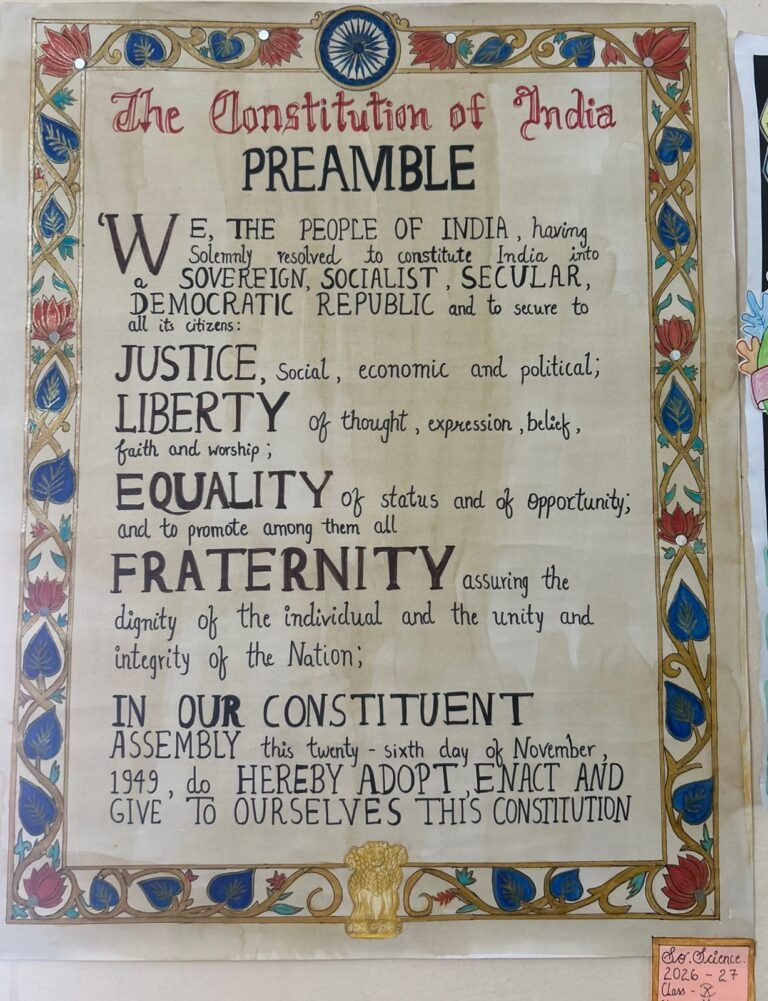 The Constitution of India
PREAMBLE
'WE, THE PEOPLE OF INDIA, having
Solemnly resolved to constitute India into
a SOVEREIGN, SOCIALIST, SECULAR,
DEMOCRATIC REPUBLIC and to secure to
all its citizens:
JUSTICE, Social, economic and political;
LIBERTY of thought, expression, belief,
faith and worship;
EQUALITY of status and of opportunity;
and to promote among them all
FRATERNITY assuring the
dignity of the individual and the unity and
integrity of the Nation;
IN OUR CONSTITUENT
ASSEMBLY this twenty-sixth day of November,
1949, do HEREBY ADOPT, ENACT AND
GIVE TO OURSELVES THIS CONSTITUTION
So. Science.
2026 - 27
Class - X